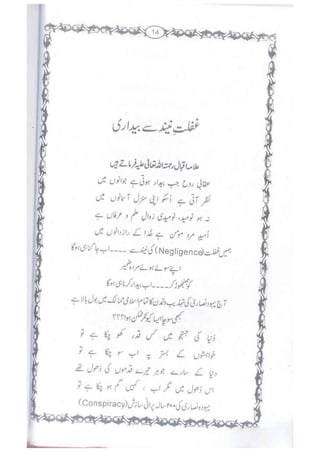 14
غفلتِ نیند سے بیداری
علامہ اقبال رحمۃ اللہ تعالیٰ علیہ فرماتے ہیں
عقابی روح جب بیدار ہوتی ہے جوانوں میں
نظر آتی ہے اُسکو اپنی منزل آسمانوں میں
نہ ہو نومید، نومیدی زوالِ علم و عرفاں ہے
اُمیدِ مردِ مومن ہے خُدا کے رازدانوں میں
ہمیں غفلت (Negligence) کی نیند سے ۔۔۔۔ اب جاگنا ہی ہوگا
اپنے سوئے ہوئے مردہ ضمیر
کو جھنجھوڑ کر۔۔۔۔ اب بیدار کرنا ہی ہوگا
آج یہود و نصاریٰ کی تہذیب و تمدن کا تمام اسلامی ممالک میں بول بالا ہے
کبھی سوچا ایسا کیونکر ممکن ہوا؟؟؟
دُنیا کی جستجو میں کس قدر کھو چکا ہے تو
خواہشوں کے بستر پہ اب سو چکا ہے تو
دنیا کے سارے جوہر تیرے قدموں کی دُھول تھے
اس دُھول میں مگر اب ، کہیں گم ہو چکا ہے تو
یہود و نصاریٰ کی ۲۰۰ سالہ پرانی سازش (Conspiracy)